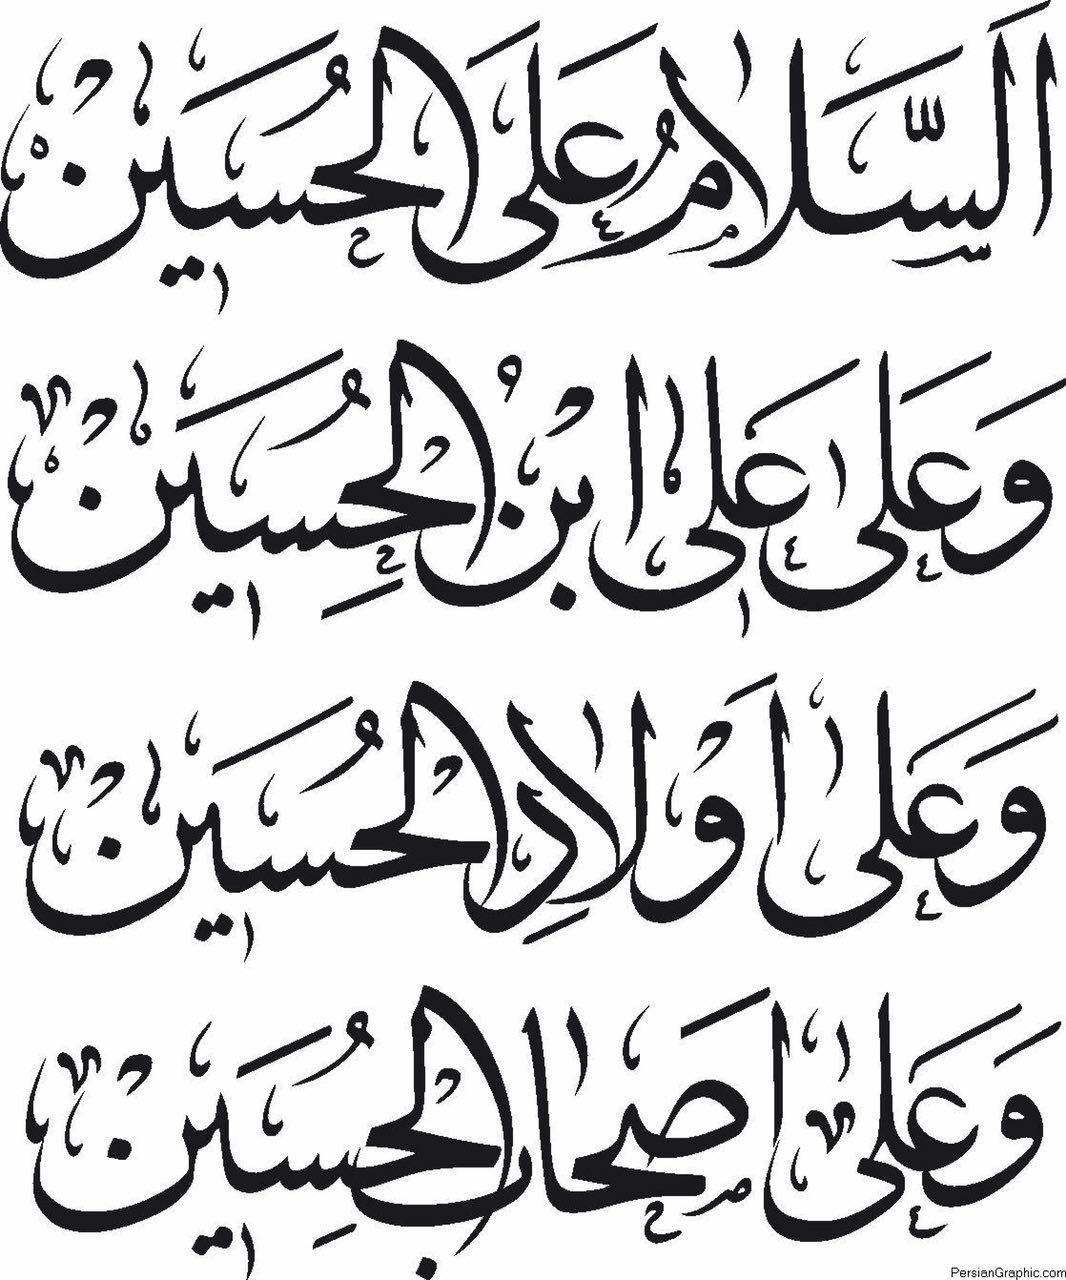 اَلسَّلامُ عَلَى الحُسَين
وَعَلى عَلى ابْنُ الحُسِين
وَعَلى اَوْلادِ الحُسَين
وَعَلى اَصحابِ الحُسَين
PersianGraphic.com